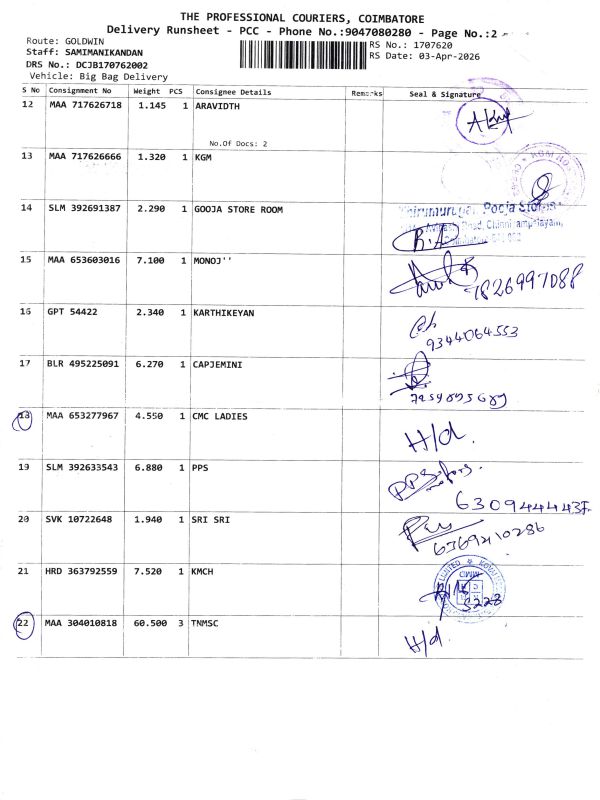 THE PROFESSIONAL COURIERS, COIMBATORE
Delivery Runsheet - PCC - Phone No.:9047080280 - Page No.:2
Route: GOLDWIN
RS No.: 1707620
Staff: SAMIMANIKANDAN
RS Date: 03-Apr-2026
DRS No.: DCJB170762002
Vehicle: Big Bag Delivery
S No Consignment No Weight PCS Consignee Details Remarks Seal & Signature
12 MAA 717626718 1.145 1 ARAVIDTH
No.Of Docs: 2
13 MAA 717626666 1.320 1 KGM
14 SLM 392691387 2.290 1 GOOJA STORE ROOM
Pooja Stores
15 MAA 653603016 7.100 1 MONOJ''
7826997088
16 GPT 54422 2.340 1 KARTHIKEYAN
9344064553
17 BLR 495225091 6.270 1 CAPJEMINI
18 MAA 653277967 4.550 1 CMC LADIES
H/d.
19 SLM 392633543 6.880 1 PPS
20 SVK 10722648 1.940 1 SRI SRI
6369210286
21 HRD 363792559 7.520 1 KMCH
5228
22 MAA 304010818 60.500 3 TNMSC
H/d.